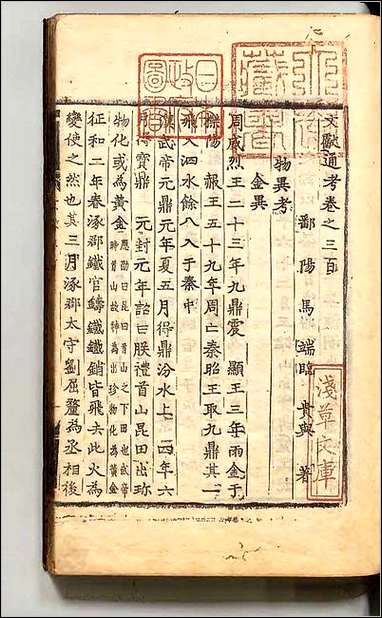 文獻通考卷之三百
鄱陽馬端臨貴與著
物異考
金異
周威烈王二十三年九鼎震 顯王三年雨金于
櫟陽 赧王五十九年周亡秦昭王取九鼎其一
飛入泗水餘八入于秦中
漢武帝元鼎元年夏五月得鼎汾水上 四年六
月得寶鼎 元封元年詔曰朕禮首山昆田出珍
物化或為黃金應劭曰昆田首山之下田也武帝時首山故神為出珍物化為黃金
征和二年春涿郡鐵官鑄鐵鐵銷皆飛去此火為
變使之然也其三月涿郡太守劉屈氂為丞相後
淺草文庫
日本政圖書